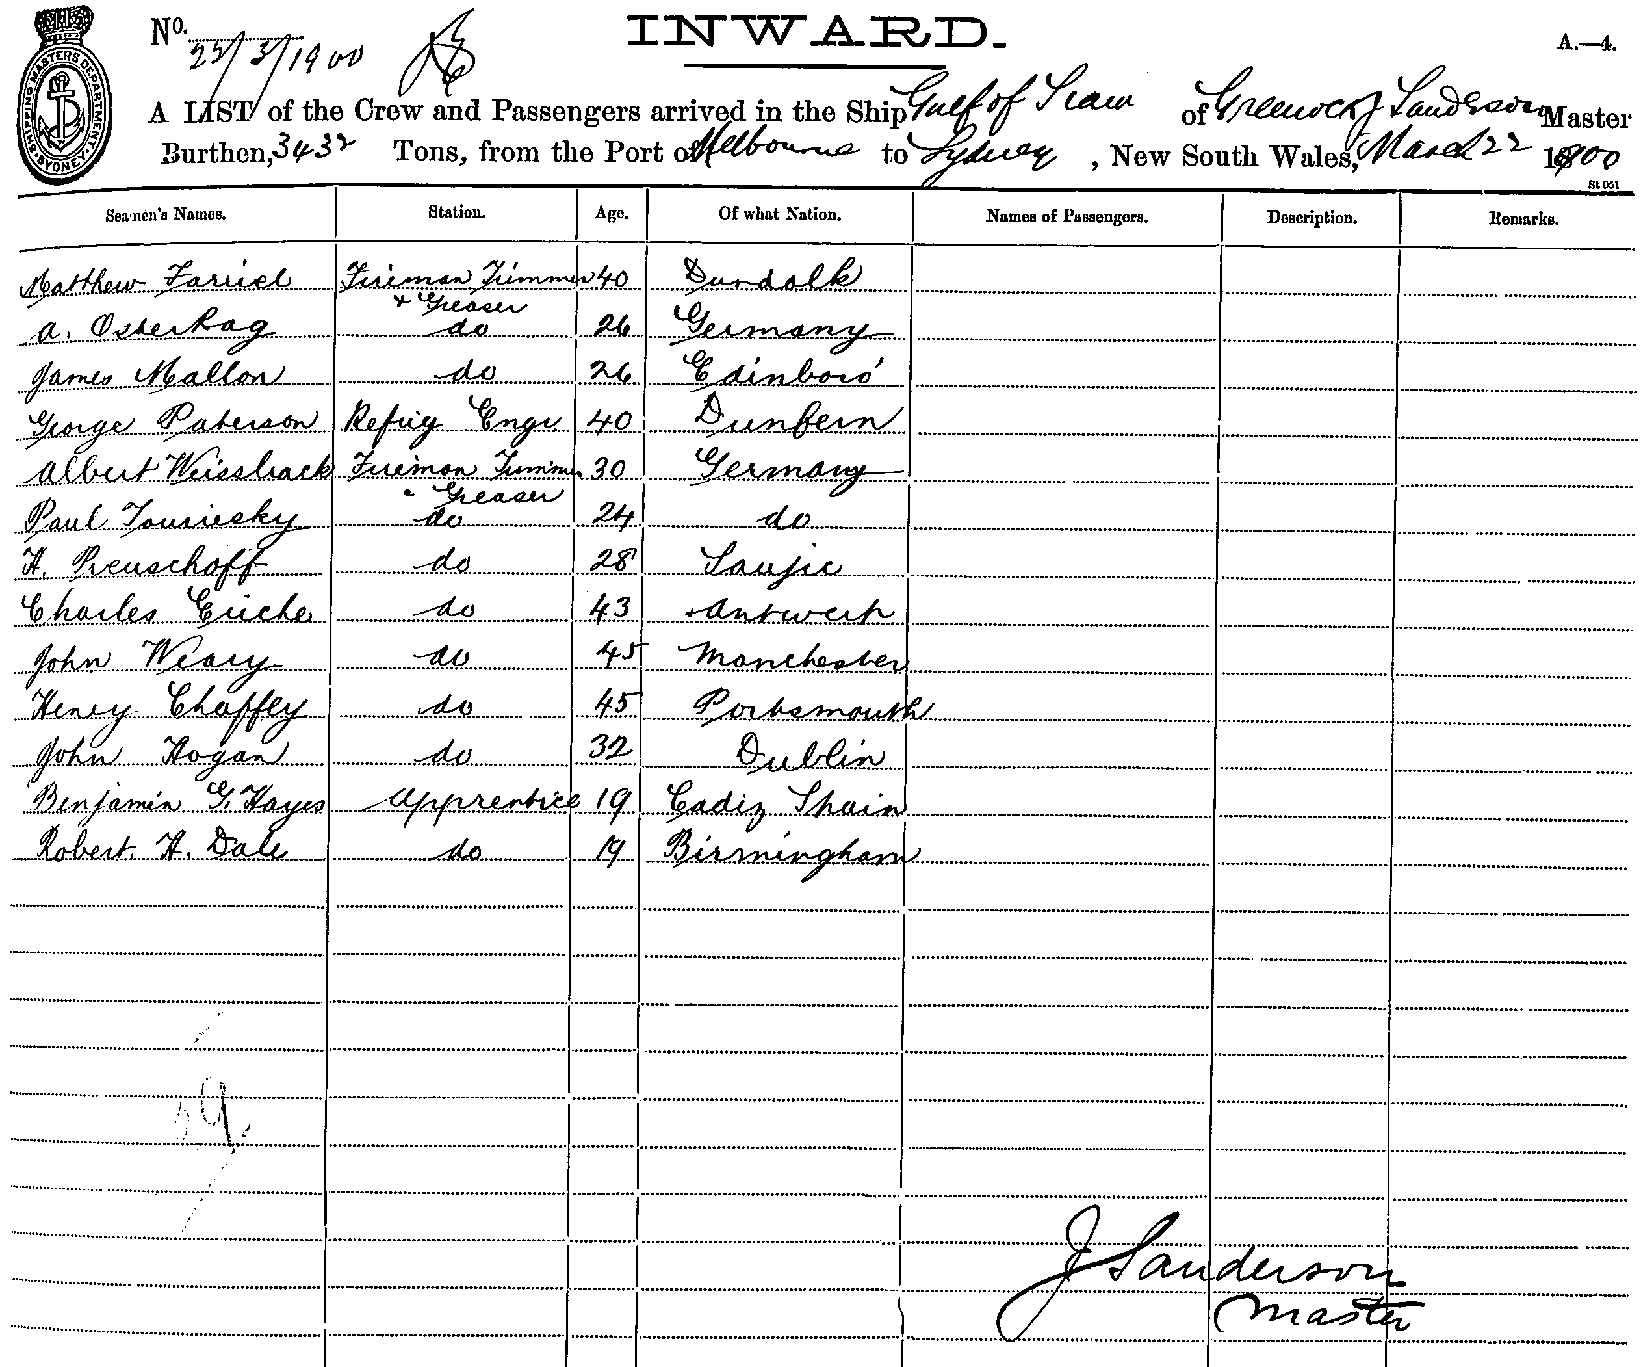 No. 22/3/1900
INWARD.
A.—4.
SHIPPING MASTERS DEPARTMENT SYDNEY
A LIST of the Crew and Passengers arrived in the Ship Gulf of Siam of Greenock J Sanderson Master
Burthen, 3432 Tons, from the Port of Melbourne to Sydney, New South Wales, March 22 1900
St 051
Seamen's Names. Station. Age. Of what Nation. Names of Passengers. Description. Remarks.
Matthew Farriel Fireman Trimmer 40 Dundalk
& Greaser
A. Osterkag do 26 Germany
James Mallon do 26 Edinboro'
George Paterson Refrig Engr 40 Dunfern
Albert Weissback Fireman Trimmer 30 Germany
" Greaser
Paul do 24 do
H. Preuschoff do 28
Charles do 43 Antwerp
John Weary do 45 Manchester
Henry Chaffey do 45 Portsmouth
John Hogan do 32 Dublin
Benjamin G. Hayes Apprentice 19 Cadiz Spain
Robert. H. Dale do 19 Birmingham
J Sanderson
Master